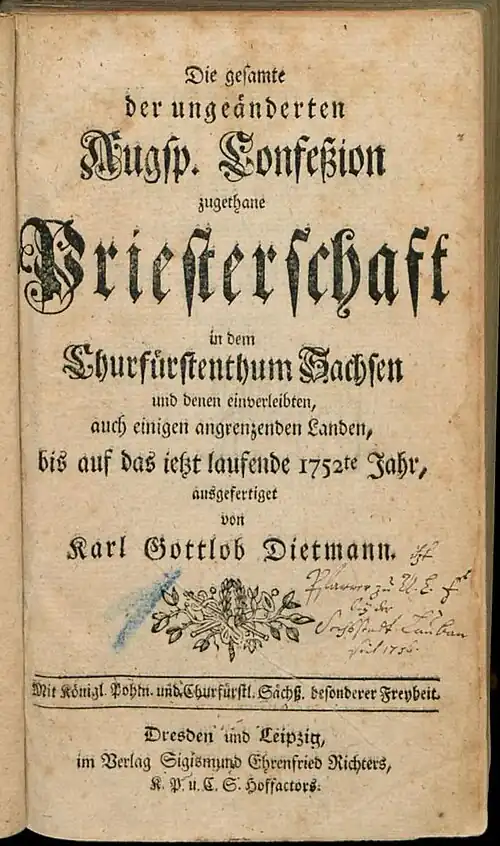 Die gesamte
der ungeänderten
Augsp. Confeßion
zugethane
Priesterschaft
in dem
Churfürstenthum Sachsen
und denen einverleibten,
auch einigen angrenzenden Landen,
bis auf das ietzt laufende 1752te Jahr,
ausgefertiget
von
Karl Gottlob Dietmann.
Pfarrer zu
Lauban
seit
Mit Königl. Pohln. und Churfürstl. Sächß. besonderer Freyheit.
Dresden und Leipzig,
im Verlag Sigismund Ehrenfried Richters,
K. P. u. C. S. Hoffactors.